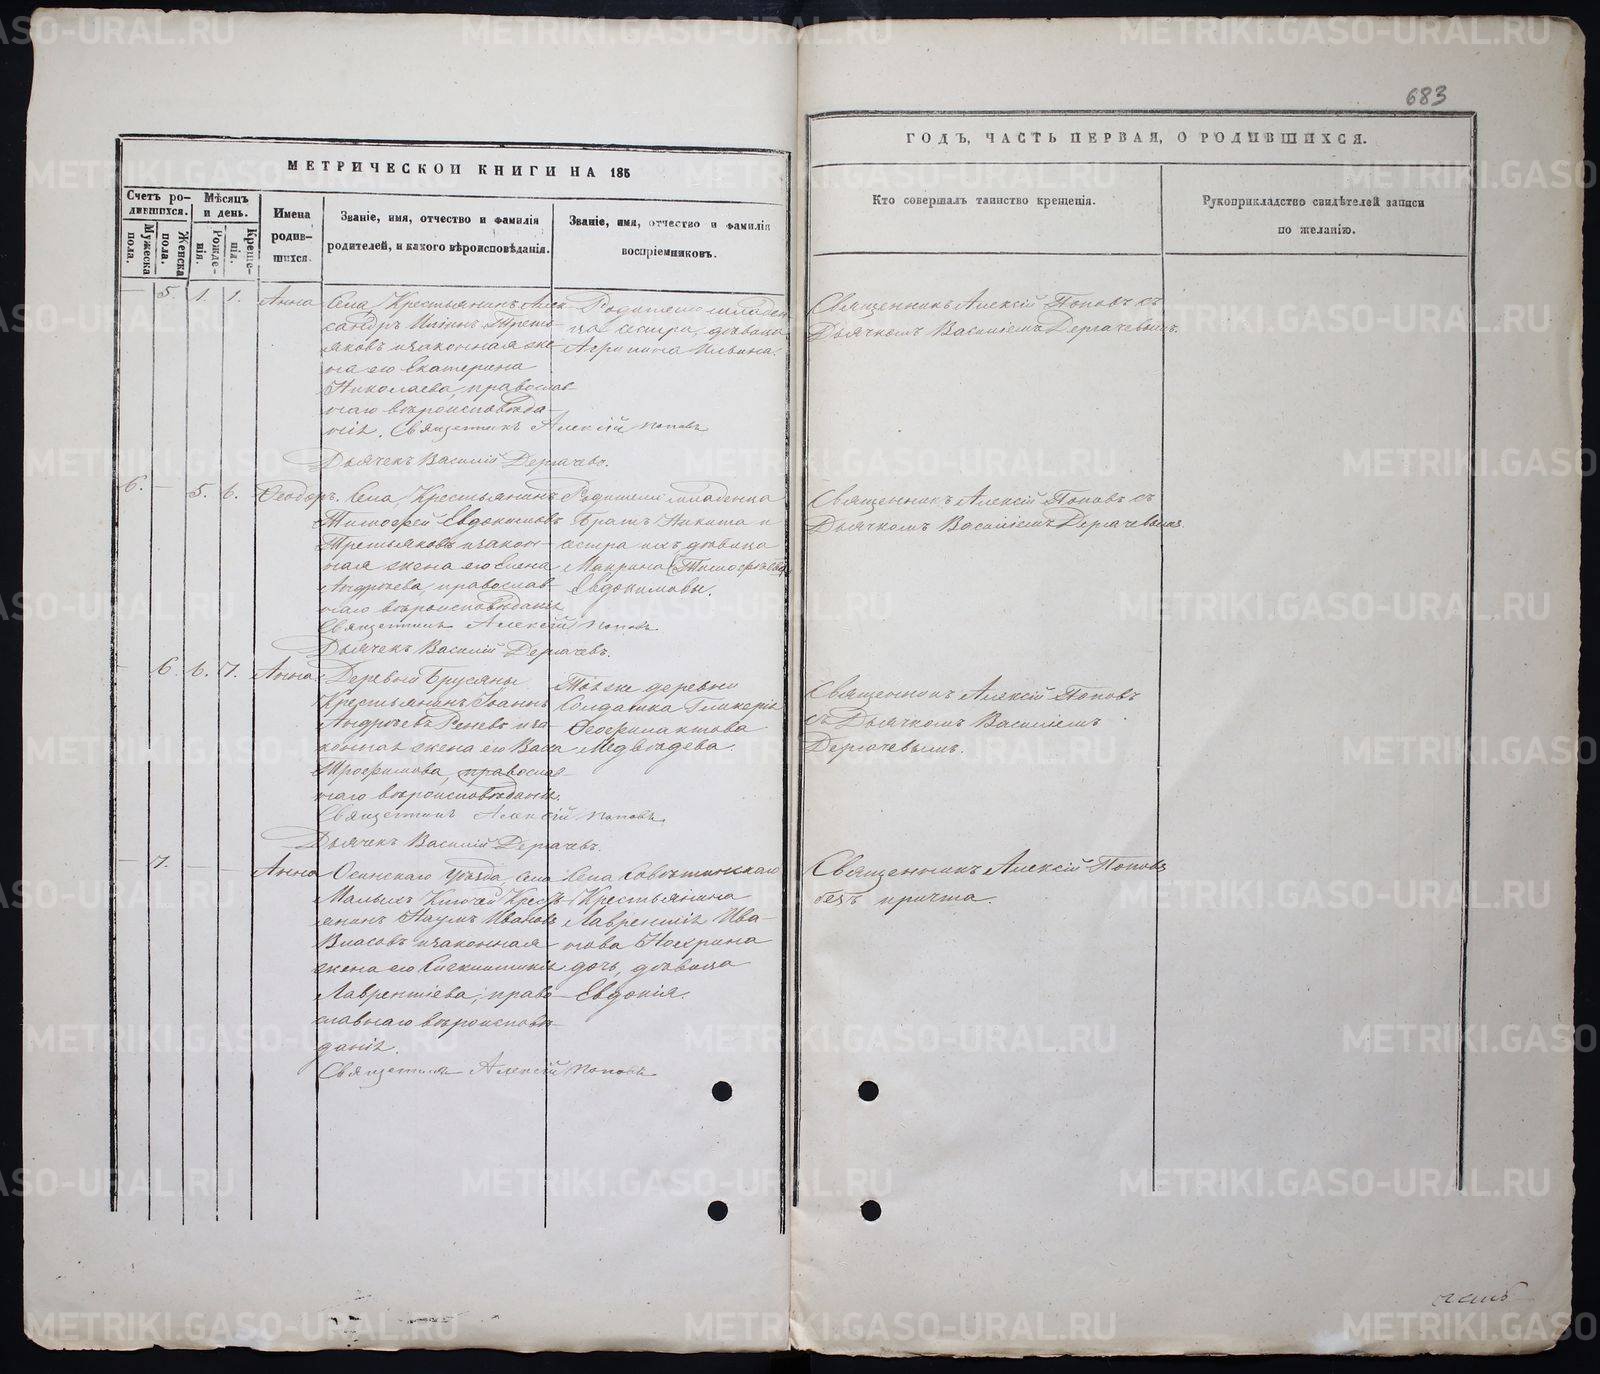 683
МЕТРИЧЕСКОЙ КНИГИ НА 185
ГОДЪ, ЧАСТЬ ПЕРВАЯ, О РОДИВШИХСЯ.
Счетъ ро-
дившихся.
Мужеска
пола.
Женска
пола.
Мѣсяцъ
и день.
Рожде-
нія.
Креще-
нія.
Имена
родив-
шихся.
Званіе, имя, отчество и фамилія
родителей, и какого вѣроисповѣданія.
Званіе, имя, отчество и фамилія
воспріемниковъ.
Кто совершалъ таинство крещенія.
Рукоприкладство свидѣтелей записи
по желанію.
— 5. 1. 1. Анна
Села, Крестьянинъ Алек
сандръ Ильинъ Треть-
яковъ и законная же-
на его Екатерина
Николаева, православ-
наго вѣроисповѣда-
нія. Священникъ Алексій Поповъ
Дьячекъ Василій Дергачевъ.
Родителю младен
ца сестра, дѣвица
Агрипина Ильина.
Священникъ Алексій Поповъ съ
Дьячкомъ Василіемъ Дергачевымъ.
6. — 5. 6. Ѳеодоръ.
Села, Крестьянинъ
Тимоѳей Евдокимовъ
Третьяковъ и закон-
ная жена его Елена
Андреева, православ-
наго вѣроисповѣданія
Священникъ Алексій Поповъ
Дьячекъ Василій Дергачевъ.
Родители младенца
Братъ Никита и
сестра ихъ дѣвица
Маврина (Тимоѳеевы)
Евдокимовы.
Священникъ Алексій Поповъ съ
Дьячкомъ Василіемъ Дергачевымъ
— 6. 6. 7. Анна
Деревни Брусяны
Крестьянинъ Іоаннъ
Андреевъ Реневъ и за-
конная жена его Васса
Трофимова, православ-
наго вѣроисповѣданія.
Священникъ Алексій Поповъ
Дьячекъ Василій Дергачевъ.
Той же деревни
Солдатка Гликерія
Ѳеофилактова
Медвѣдева.
Священникъ Алексій Поповъ
съ Дьячкомъ Василіемъ
Дергачевымъ.
— 7. — — Анна
Осинскаго Уѣзда, Села
Малыхъ Ключей Кресть-
янинъ Наумъ Ивановъ
Власовъ и законная
жена его
Лаврентіева, право-
славнаго вѣроисповѣ-
данія.
Священникъ Алексій Поповъ
Села
Крестьянина
Лаврентія Ива-
нова Нохрина
дочь, дѣвица
Евдокія.
Священникъ Алексій Поповъ
безъ причта.
METRIKI.GASO-URAL.RU